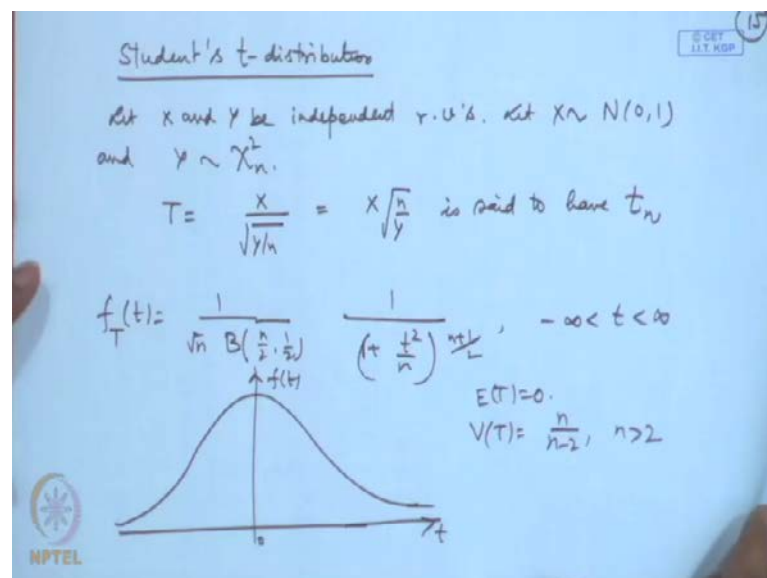 15
© CET
I.I.T. KGP
Student's t-distribution
Let X and Y be independent r.v's. Let X ~ N(0,1)
and Y ~ χ²ₙ.
T = X / √(Y/n) = X √(n/Y) is said to have tₙ
f_T(t) = 1 / (√n B(n/2, 1/2)) 1 / (1 + t²/n)^((n+1)/2), -∞ < t < ∞
f(t)
E(T)=0.
V(T) = n/(n-2), n>2
0
t
NPTEL